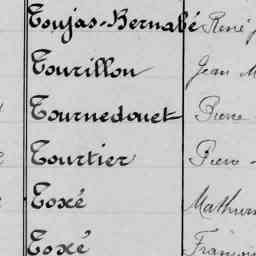 Toujas-Bernabé René
Tourillon Jean M
Tournedouet Pierre
Tourtier Pierre
Toxé Mathurin
Toxé François